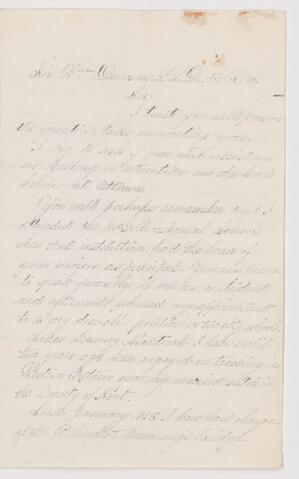 Sir Wm Dawson L.L.D. F.R.S.
Sir
I trust you will pardon
the great I take in writing you.
I beg to ask if you would assist me
in getting a situation in the Civil
Service at Ottawa.
You will perhaps remember that I
attended the McGill Normal School
when that institution had the honor of
your services as principal. You were pleased
to speak favorably of me as a student
and afterwards procured my appointment
to a very desirable position in the city schools.
Since leaving Montreal I have until
two years ago been engaged in teaching in
Western Ontario near my married sister in
the County of Kent.
Since January 1885 I have had charge
of the